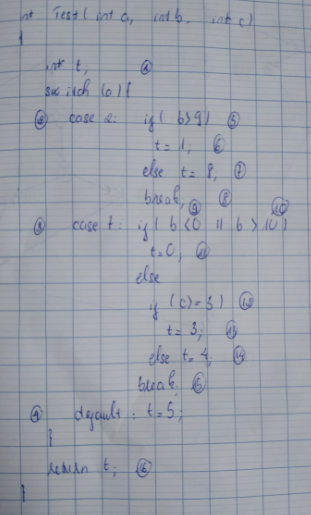 int Test( int a, int b, int c)
{
int t; ①
switch (a) {
② case 2: if ( b>9) ⑤
t = 1; ⑥
else t = 8; ⑦
break; ⑧
⑨ ⑩
③ case t: if ( b <0 || b > 10)
t=0; ⑪
else
if (c)=3) ⑫
t = 3; ⑬
else t= 4; ⑭
break;
④ default : t=5;
}
return t; ⑯
}